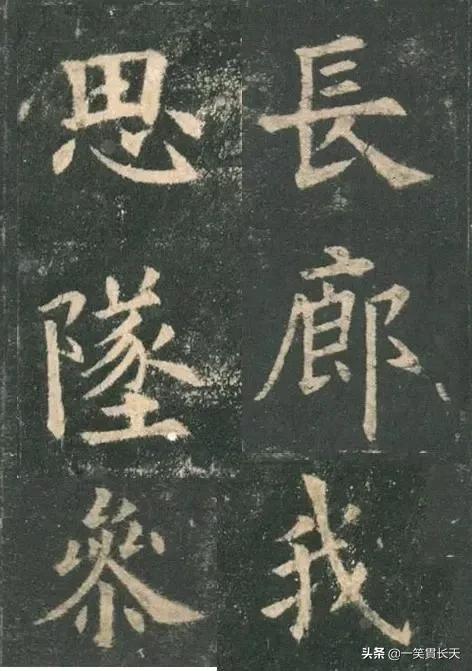 長廊我
思墜參
头条 @一笑貫长天